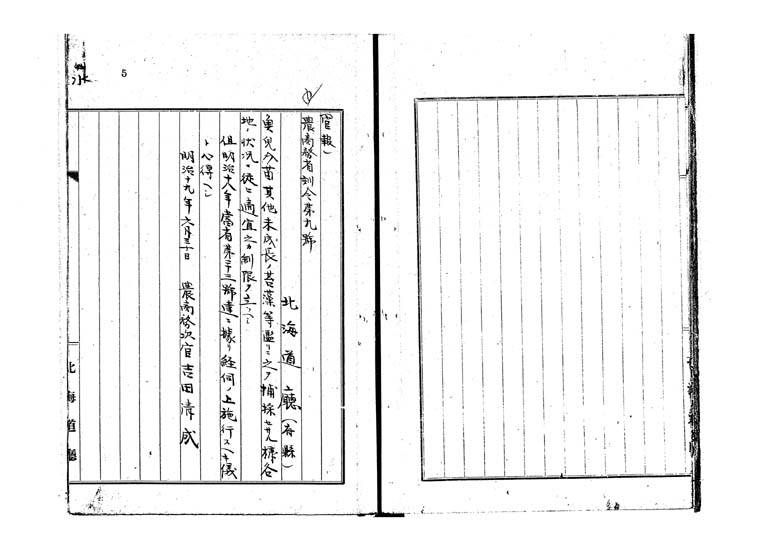 水
5
官報)
農商務省訓令第九號
北海道廳(府縣)
魚兒介苗其他未成長ノ苔藻等濫リニ之ヲ捕採セサル様各
地ノ状況ニ從ヒ適宜之カ制限ヲ立ツヘシ
但明治十八年當省第三十三號達ニ據リ經伺ノ上施行スヘキ儀
ト心得ヘシ
明治十九年六月三十日 農商務次官吉田清成
北海道廳